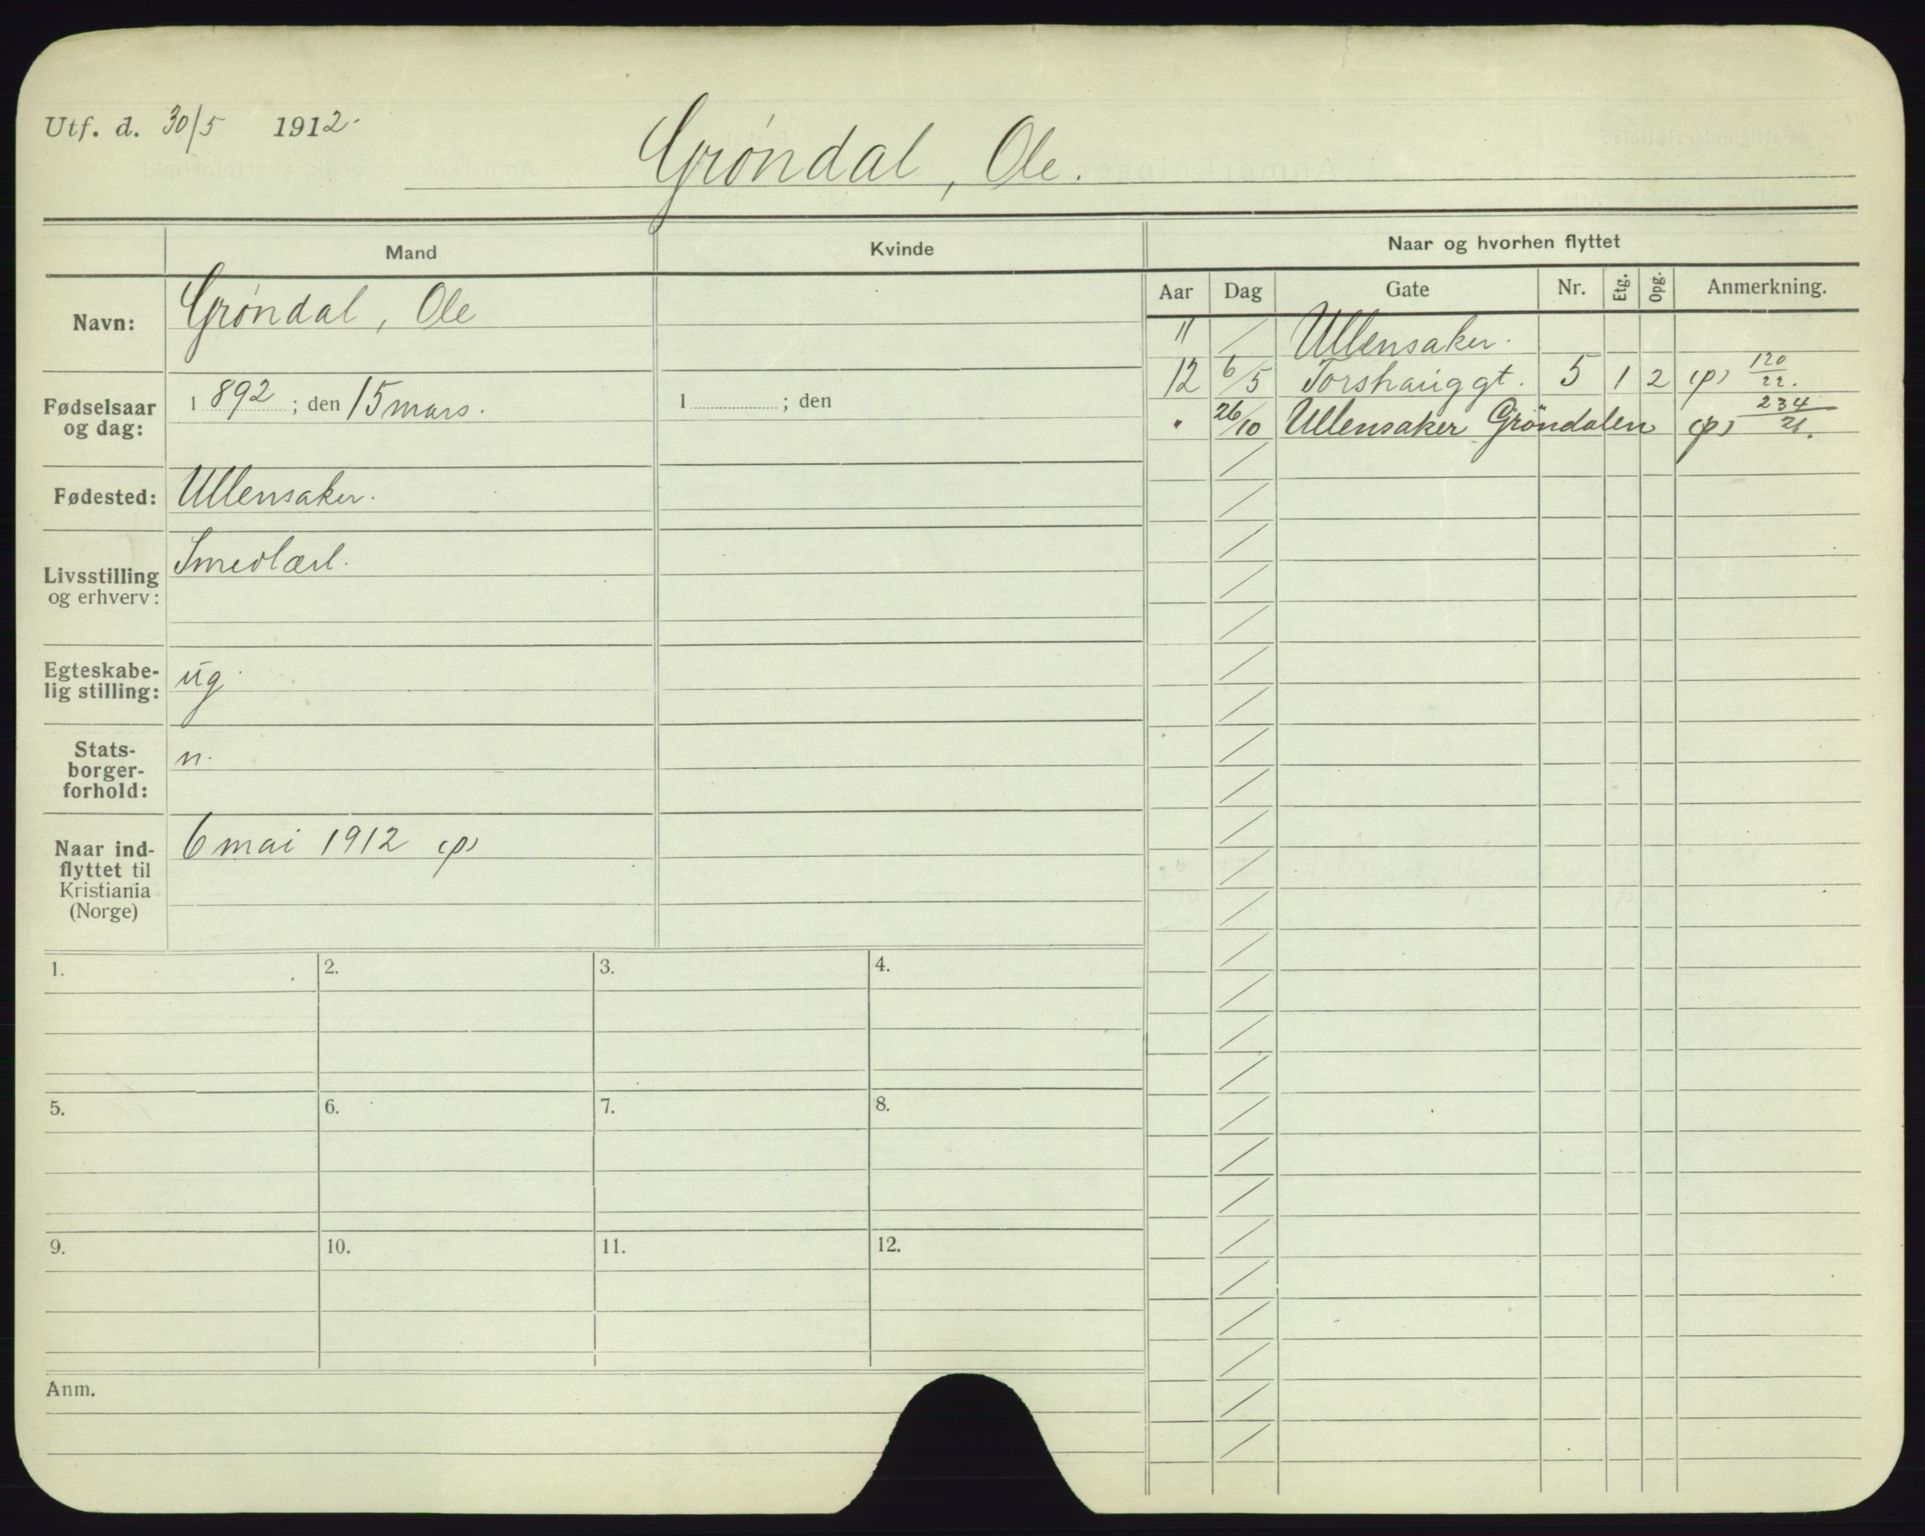 Utf. d. 30/5 1912.
Grøndal, Ole.
Mand
Kvinde
Navn: Grøndal, Ole
Fødselsaar og dag: 1892; den 15 mars.
1 ; den
Fødested: Ullensaker.
Livsstilling og erhverv: Smedlærl.
Egteskabe-
lig stilling: ug.
Stats-
borger-
forhold: n.
Naar ind-
flyttet til
Kristiania
(Norge)
6 mai 1912 (p)
Naar og hvorhen flyttet
Aar Dag Gate Nr. Etg. Opg. Anmerkning.
" / Ullensaker.
12 6/5 Torshauggt. 5 1 2 (p) 120/22.
" 26/10 Ullensaker Grøndalen (p) 234/21.
1. 2. 3. 4.
5. 6. 7. 8.
9. 10. 11. 12.
Anm.